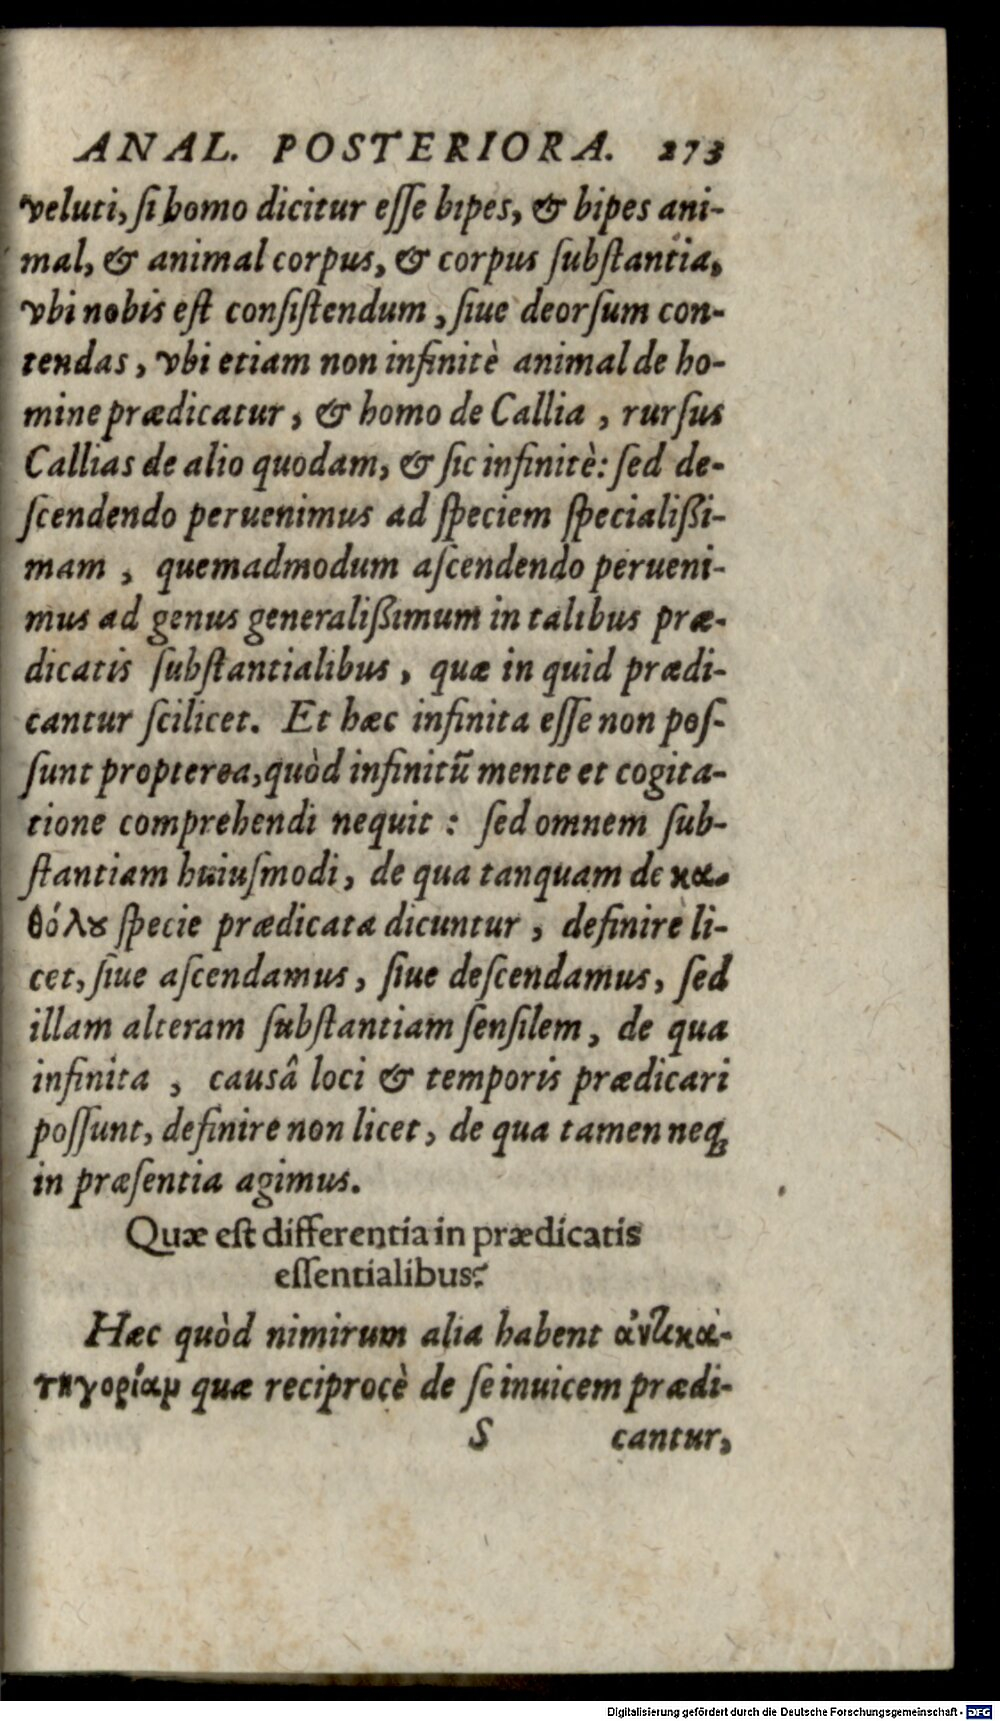 ANAL. POSTERIORA. 273
veluti, si homo dicitur esse bipes, & bipes ani-
mal, & animal corpus, & corpus substantia,
vbi nobis est consistendum, siue deorsum con-
tendas, vbi etiam non infinitè animal de ho-
mine prædicatur, & homo de Callia, rursus
Callias de alio quodam, & sic infinitè: sed de-
scendendo peruenimus ad speciem specialißi-
mam, quemadmodum ascendendo perueni-
mus ad genus generalißimum in talibus præ-
dicatis substantialibus, quæ in quid prædi-
cantur scilicet. Et hæc infinita esse non pos-
sunt propterea, quòd infinitũ mente et cogita-
tione comprehendi nequit: sed omnem sub-
stantiam huiusmodi, de qua tanquam de κα-
θόλȣ specie prædicata dicuntur, definire li-
cet, siue ascendamus, siue descendamus, sed
illam alteram substantiam sensilem, de qua
infinita, causâ loci & temporis prædicari
possunt, definire non licet, de qua tamen neqꝫ
in præsentia agimus.
Quæ est differentia in prædicatis
essentialibus?
Hæc quòd nimirum alia habent ἀντικα-
τηγορίαμ quæ reciprocè de se inuicem prædi-
S cantur,
Digitalisierung gefördert durch die Deutsche Forschungsgemeinschaft - DFG